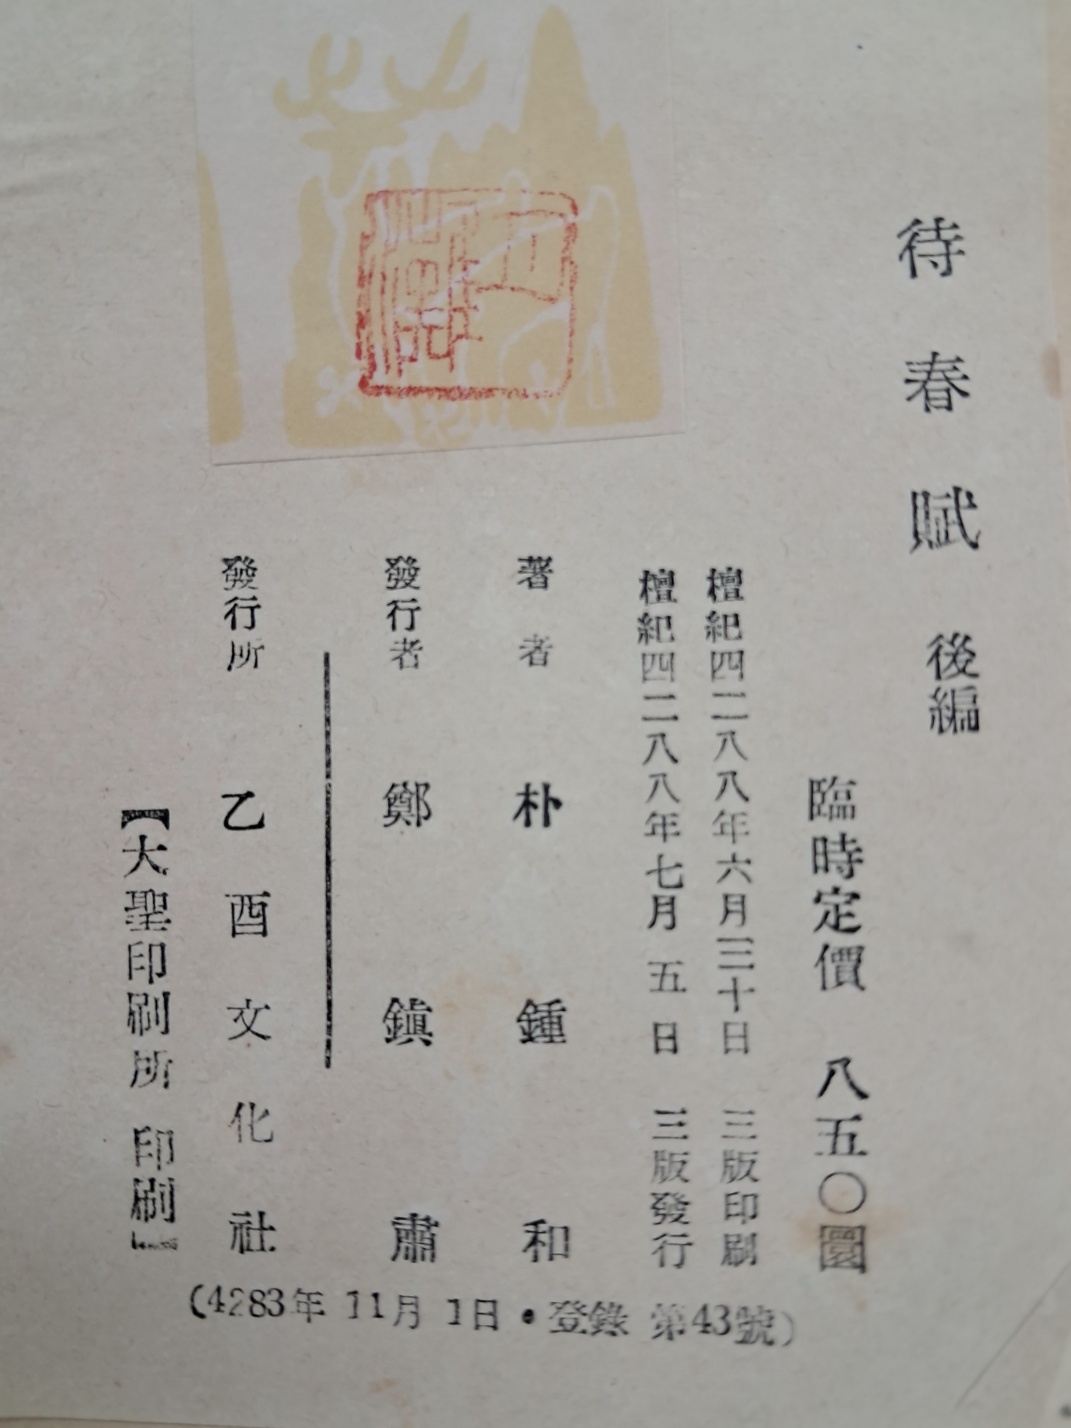 待春賦 後編
臨時定價 八五〇圜
檀紀四二八八年六月三十日 三版印刷
檀紀四二八八年七月 五日 三版發行
著者 朴鍾和
發行者 鄭鎭肅
發行所 乙酉文化社
【大聖印刷所 印刷】
(4283年 11月 1日・登錄 第43號)